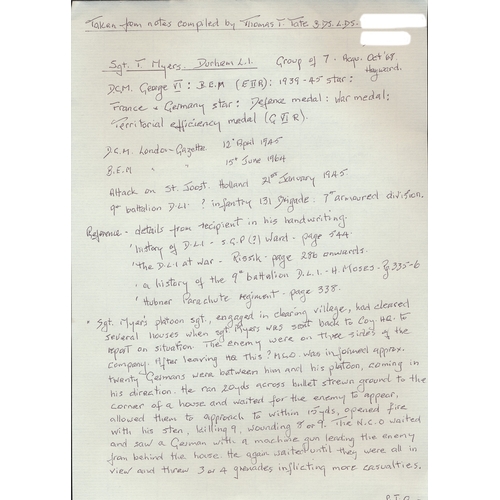 Taken from notes compiled by Thomas T. Tate 3 DS. LDS.
Sgt. T. Myers. Durham L.I. Group of 7. Acqu. Oct '68
Hayward.
D.C.M. George VI: B.E.M (E II R): 1939-45 star:
France & Germany star: Defence medal: War medal:
Territorial efficiency medal (G VI R).
D.C.M. London-Gazette 12th April 1945
B.E.M " " 15th June 1964
Attack on St. Joost. Holland 21st January 1945
9th battalion D.L.I. ? infantry 131 Brigade: 7th armoured division.
Reference - details from recipient in his handwriting.
'history of D.L.I - S.G.P (?) Ward - page 544.
'The D.L.I at war - Rissik - page 286 onwards.
'a history of the 9th battalion D.L.I. - H. Moses - Pg 335-6
'Hubner Parachute regiment - page 338.
• Sgt. Myers' platoon sgt, engaged in clearing village, had cleared
several houses when sgt Myers was sent back to Coy HQ. to
report on situation. The enemy were on three sides of the
company. After leaving HQ this ? N.C.O. was informed approx.
twenty Germans were between him and his platoon, coming in
his direction. He ran 20yds across bullet strewn ground to the
corner of a house and waited for the enemy to appear,
allowed them to approach to within 15yds, opened fire
with his sten, killing 9, wounding 8 or 9. The N.C.O waited
and saw a German with a machine gun leading the enemy
from behind the house. He again waited until they were all in
view and threw 3 or 4 grenades inflicting more casualties.
P.T.O